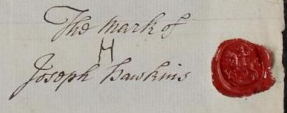 The Mark of
H
Joseph Hawkins